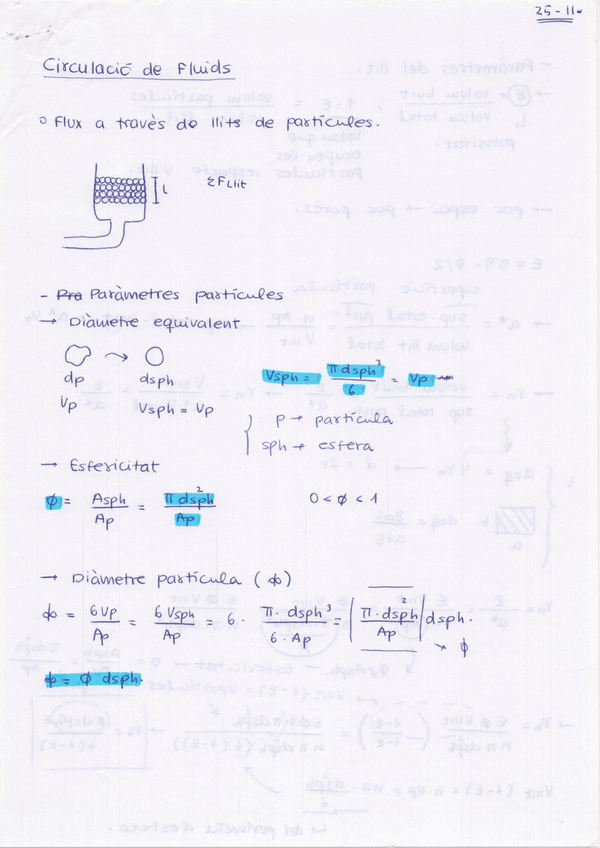 25-11.
Circulació de Fluids
○ Flux a través de llits de partícules.
L ΣFLlit
- Paràmetres partícules
→ Diàmetre equivalent
dp dsph Vsph = π dsph³ / 6 = Vp
Vp Vsph = Vp
p → partícula
sph → esfera
→ Esfericitat
ϕ = Asph / Ap = π dsph² / Ap 0 < ϕ < 1
→ Diàmetre partícula (ϕ)
ϕ = 6Vp / Ap = 6Vsph / Ap = 6 · π · dsph³ / 6 · Ap = | π · dsph² / Ap | dsph.
→ ϕ
ϕ = ϕ dsph.